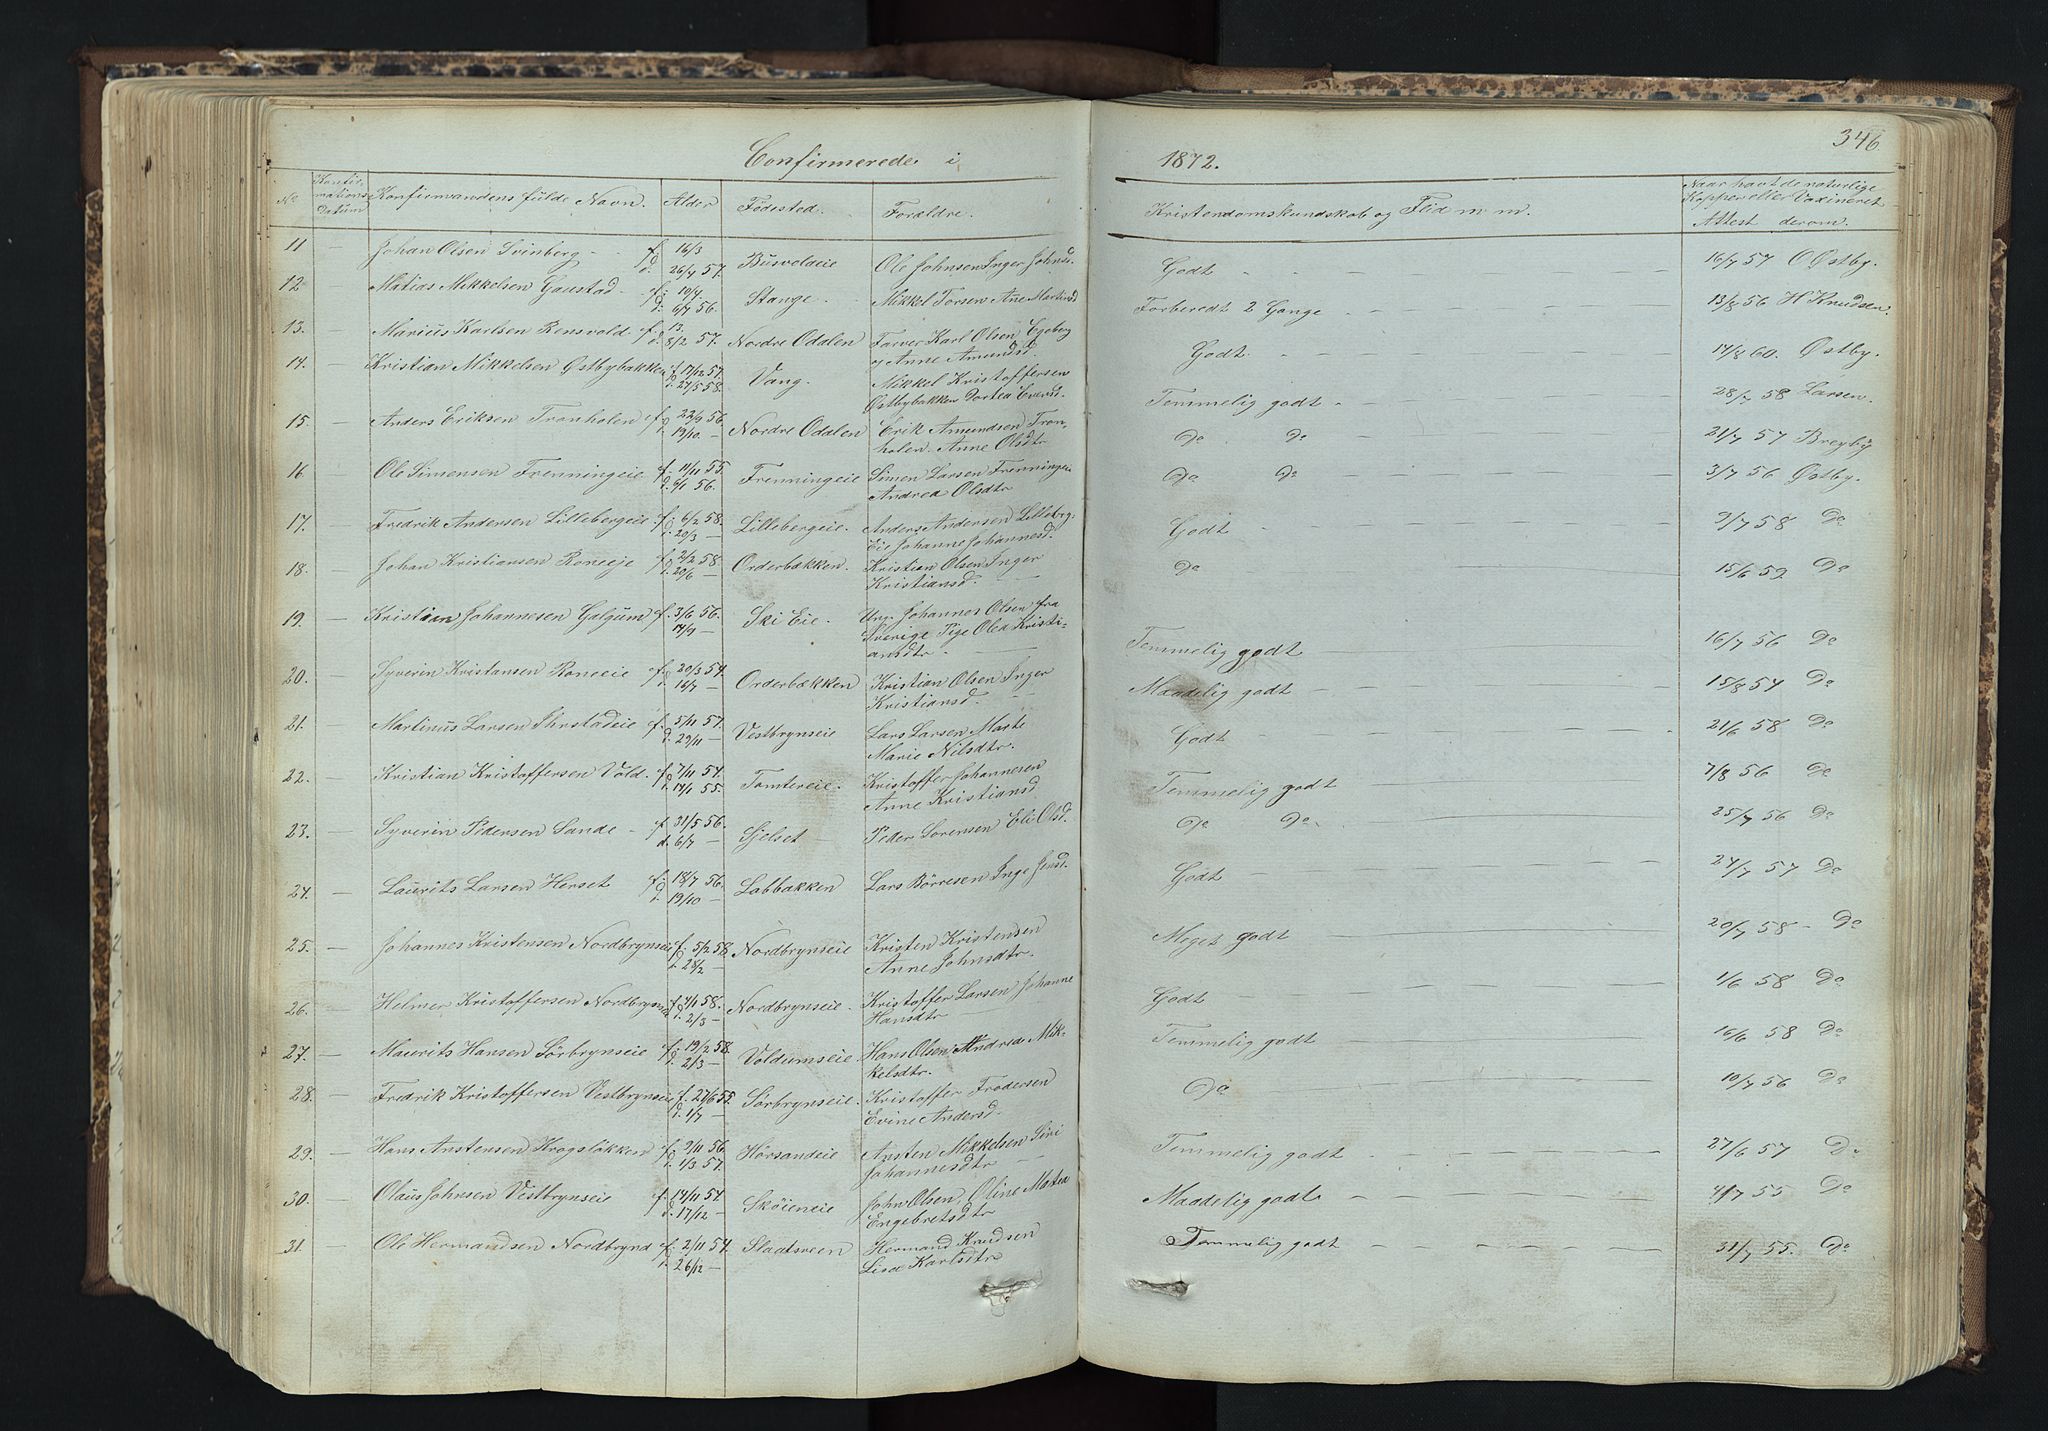 Confirmerede i 1872.
346
No Konfirmations Datum Konfirmandens fulde Navn. Alder Fødested. Forældre. Kristendomskundskab og Flid m. m. Naar havt de naturlige Kopper eller Vaxineret Attest derom.
11 — Johan Olsen Svinberg - f. 16/3 d. 26/4 57. Busvoldeie Ole Johnsen Inger Johnsd. Godt 16/7 57 O Østby.
12 — Matias Mikkelsen Gaustad - f. 19/4 d. 6/7 56. Stange - Mikkel Torsen Ane Martinsd Forberedt 2 Gange 13/8 56 H Knudsen.
13. — Marius Karlsen Rensvold f. 13. d. 8/2 57. Nordre Odalen Farver Karl Olsen Egeberg
og Anne Amundsd. Godt. 14/8 60. Østby.
14. — Kristian Mikkelsen Østbybakken f. 17/12 57. d. 24/5 58. Vang. Mikkel Kristoffersen
Østbybakken Dortea Eversd. Temmelig godt - 28/7 58 Larsen.
15. — Anders Eriksen Tronholen f. 22/9 56. d. 19/10 — Nordre Odalen Erik Amundsen Tron-
holen. Anne Olsdtr Do Do 21/7 57 Breyby
16 — Ole Simensen Frenningeie f. 11/11 55. d. 6/1 56. Frenningeie Simen Larsen Frenningeie
Andrea Olsdtr Do Do 3/7 56 Østby.
17. — Fredrik Andersen Lillebergeie f. 6/2 58. d. 20/3 — Lillebergeie. Anders Andersen Lilleberg-
Eie Johanne Johannesd. Godt 9/7 58 Do
18. — Johan Kristiansen Roneeje f. 2/2 58. d. 20/6 — Orderbækken. Kristian Olsen Inger
Kristiansd. Do 15/6 59 Do
19. — Kristian Johannesen Galgum f. 3/6 56. 14/9 — Ski Eie. Ung. Johannes Olsen fra
Sverige Pige Olea Kristi-
ansdtr. Temmelig godt 16/7 56 Do
20. — Syverin Kristansen Roneeie f. 20/3 54. d. 16/7 — Orderbækken Kristian Olsen Inger
Kristiansd. Maadelig godt 15/8 54 Do
21. — Martinus Larsen f. 5/11 57. d. 29/11 — Vestbrynseie Lars Larsen Marte
Marie Nilsdtr. Godt 21/6 58 Do
22. — Kristian Kristoffersen Vold. f. 7/11 54. d. 14/1 55. Tomtereie. Kristoffer Johannesen
Anne Kristiansd Temmelig godt 7/8 56 Do
23. — Syverin Pedersen Sande - f. 31/5 56. d. 6/7 — Sjelset - Peder Sorensen Eli Olsd. Do Do. 25/7 56 Do
24. — Laurits Larsen Herset f. 18/7 56. d. 19/10 — Labbakken Lars Børresen Inge Jensd. Godt 24/7 57 Do
25. — Johannes Kristensen Nordbrynseie f. 5/2 58. d. 28/2 — Nordbrynseie Kristen Kristensen
Anne Johnsdtr. Meget godt 20/7 58 - Do
26. — Helmer Kristoffersen Nordbrynseie f. 4/1 58. d. 2/3 — Nordbrynseie. Kristoffer Larsen Johanne
Hansdtr Godt 1/6 58 Do
27. — Maurits Hansen Sørbrynseie f. 19/2 58. d. 2/3 — Voldumseie Hans Olsen Andrea Mik-
kelsdtr. Temmelig godt 16/6 58 Do
28. — Fredrik Kristoffersen Vestbrynseie f. 27/6 55. d. 1/7 — Sørbrynseie. Kristoffer Frodersen
Evine Andersd. Do 10/7 56 Do
29. — Hans Anstensen Krogsløkken f. 9/11 56 d. 1/3 57. Horsandeie Ansten Mikkelsen Siri
Johannesdtr — Temmelig godt 27/6 57 Do
30. — Olaus Johnsen Vestbrynseie f. 14/11 54. d. 17/12 — Skøieneie John Olsen, Oline Martea
Engebretsdtr Maadelig godt 4/7 55 Do
31. — Ole Hermandsen Nordbrynd f. 2/11 54. d. 26/12 — Sladsveen Hermand Knudsen
Lisa Karlsdtr Temmelig godt 31/7 55. Do